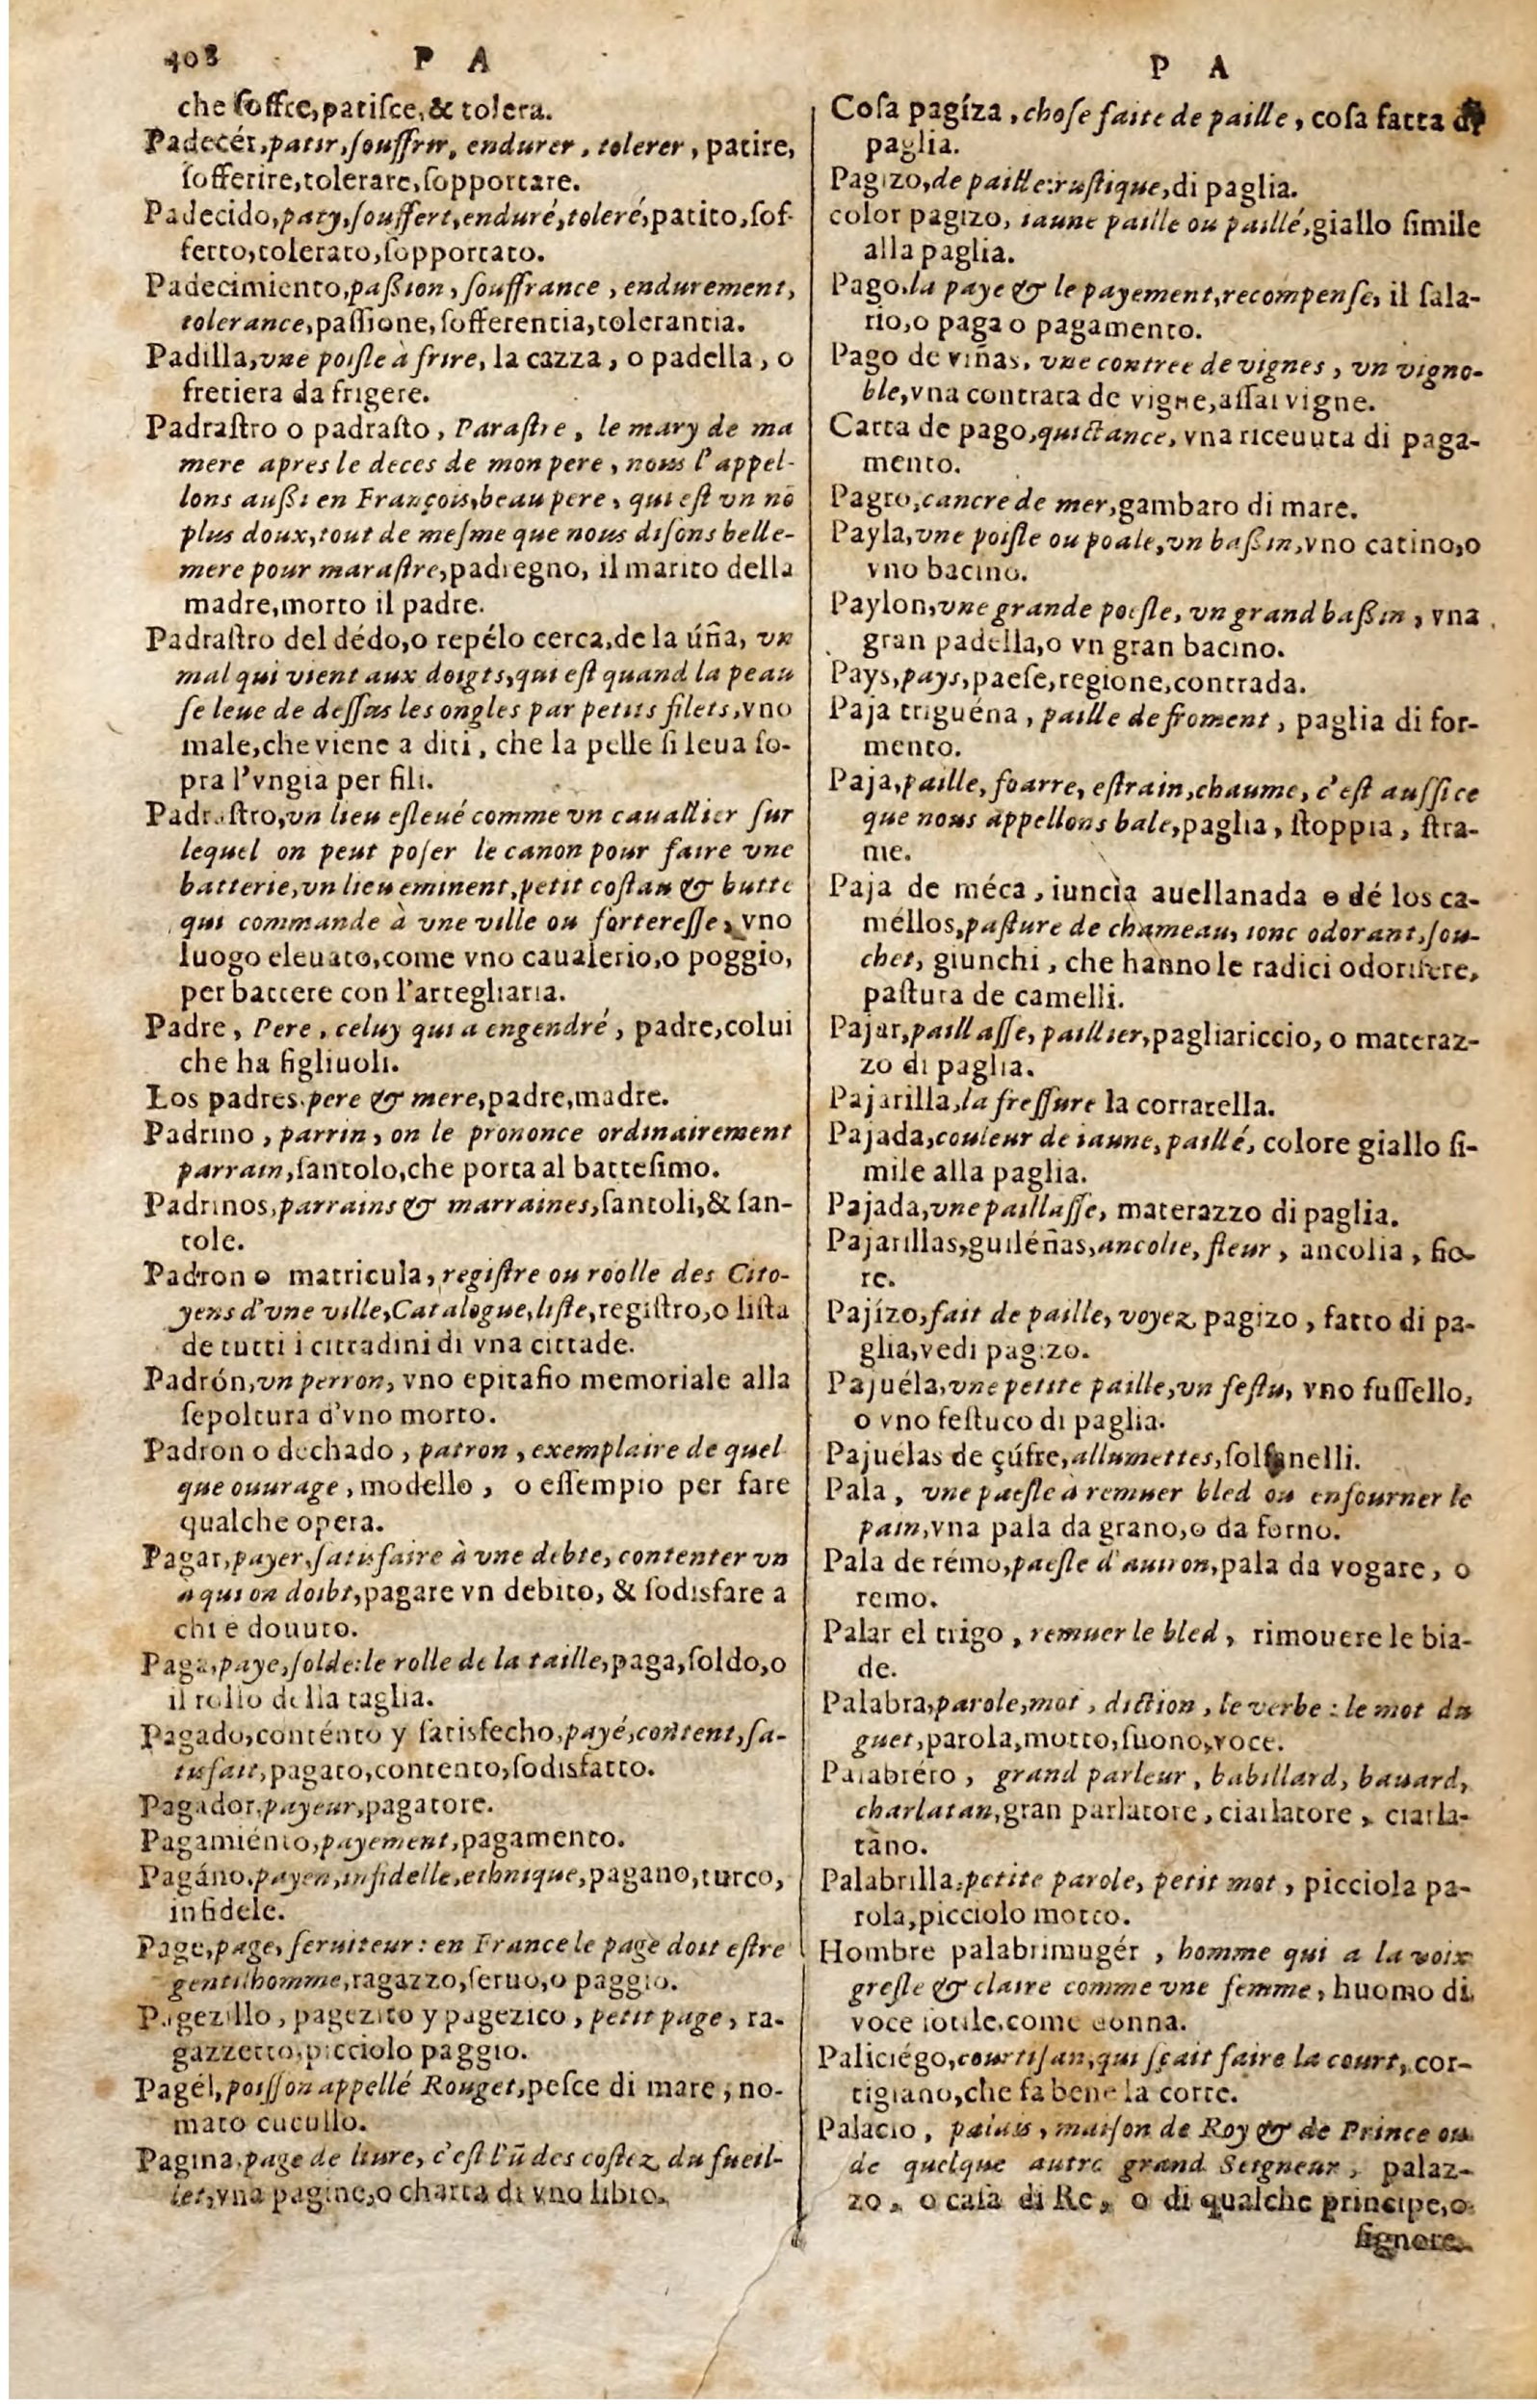 408 P A
che soffre,patisce,& tolera.
Padecér,patir,souffrir, endurer, tolerer, patire,
sofferire,tolerare,sopportare.
Padecido,paty,souffert,enduré,toleré,patito,sof-
ferto,tolerato,sopportato.
Padecimiento,paßion, souffrance, endurement,
tolerance,passione,sofferentia,tolerantia.
Padilla,vne poisle à frire, la cazza, o padella, o
fretiera da frigere.
Padrastro o padrasto, Parastre, le mary de ma
mere apres le deces de mon pere, nous l'appel-
lons außi en François,beau pere, qui est vn nō
plus doux,tout de mesme que nous disons belle-
mere pour marastre,padregno, il marito della
madre,morto il padre.
Padrastro del dédo,o repélo cerca,de la úña, vn
mal qui vient aux doigts,qui est quand la peau
se leue de dessus les ongles par petits filets,vno
male,che viene a diti, che la pelle si leua so-
pra l'vngia per fili.
Padrastro,vn lieu esleué comme vn cauallier sur
lequel on peut poser le canon pour faire vne
batterie,vn lieu eminent,petit costau & butte
qui commande à vne ville ou forteresse, vno
luogo eleuato,come vno caualerio,o poggio,
per battere con l'artegliaria.
Padre, Pere, celuy qui a engendré, padre,colui
che ha figliuoli.
Los padres, pere & mere,padre,madre.
Padrino, parrin, on le prononce ordinairement
parrain,santolo,che porta al battesimo.
Padrinos,parrains & marraines,santoli,& san-
tole.
Padron o matricula, registre ou roolle des Cito-
yens d'vne ville,Catalogue,liste,registro,o lista
de tutti i cittadini di vna cittade.
Padrón,vn perron, vno epitafio memoriale alla
sepoltura d'vno morto.
Padron o dechado, patron, exemplaire de quel
que ouurage, modello, o essempio per fare
qualche opera.
Pagar,payer,satisfaire à vne debte, contenter vn
à qui on doibt,pagare vn debito, & sodisfare a
chi e douuto.
Paga,paye,solde:le rolle de la taille,paga,soldo,o
il rollo della taglia.
Pagado,conténto y satisfecho,payé,content,sa-
tisfait,pagato,contento,sodisfatto.
Pagador,payeur,pagatore.
Pagamiénto,payement,pagamento.
Pagáno,payen,infidelle,ethnique,pagano,turco,
infidele.
Page,page, seruiteur: en France le page doit estre
gentilhomme,ragazzo,seruo,o paggio.
Pagezillo, pagezito y pagezico, petit page, ra-
gazzetto,picciolo paggio.
Pagél,poisson appellé Rouget,pesce di mare, no-
mato cucullo.
Pagina,page de liure, c'est l'ū des costez du fueil-
let,vna pagine,o charta di vno libro.
P A
Cosa pagíza, chose faite de paille, cosa fatta di
paglia.
Pagizo,de paille:rustique,di paglia.
color pagizo, iaune paille ou paillé,giallo simile
alla paglia.
Pago,la paye & le payement,recompense, il sala-
rio,o paga o pagamento.
Pago de viñas, vne contree de vignes, vn vigno-
ble,vna contrata de vigne,assai vigne.
Carta de pago,quictance, vna riceuuta di paga-
mento.
Pagro,cancre de mer,gambaro di mare.
Payla,vne poisle ou poale,vn baßin,vno catino,o
vno bacino.
Paylon,vne grande poisle, vn grand baßin, vna
gran padella,o vn gran bacino.
Pays,pays,paese,regione,contrada.
Paja triguéna, paille de froment, paglia di for-
mento.
Paja,paille, foarre, estrain,chaume, c'est aussi ce
que nous appellons bale,paglia, stoppia, stra-
me.
Paja de méca, iuncia auellanada o dé los ca-
méllos,pasture de chameau, ionc odorant,sou-
chet, giunchi, che hanno le radici odorifere,
pastura de camelli.
Pajar,paillasse, paillier,pagliariccio, o materaz-
zo di paglia.
Pajarilla,la fressure la corratella.
Pajada,couleur de iaune,paillé, colore giallo si-
mile alla paglia.
Pajada,vne paillasse, materazzo di paglia.
Pajarillas,guiléñas,ancolie, fleur, ancolia, fio-
re.
Pajízo,fait de paille, voyez pagizo, fatto di pa-
glia,vedi pagizo.
Pajuéla,vne petite paille,vn festu, vno fussello,
o vno festuco di paglia.
Pajuelas de çúfre,allumettes,solfanelli.
Pala, vne paesle à remuer bled ou enfourner le
pain,vna pala da grano,o da forno.
Pala de rémo,paesle d'auiron,pala da vogare, o
remo.
Palar el trigo, remuer le bled, rimouere le bia-
de.
Palabra,parole,mot, diction, le verbe: le mot du
guet,parola,motto,suono,voce.
Palabréro, grand parleur, babillard, bauard,
charlatan,gran parlatore, ciarlatore, ciarla-
tano.
Palabrilla,petite parole, petit mot, picciola pa-
rola,picciolo motto.
Hombre palabrimugér, homme qui a la voix
gresle & claire comme vne femme, huomo di
voce sotile,come donna.
Paliciégo,courtisan,qui sçait faire la court, cor-
tigiano,che fa bene la corte.
Palacio, palais, maison de Roy & de Prince ou
de quelque autre grand Seigneur, palaz-
zo, o casa di Re, o di qualche principe,o
signore.